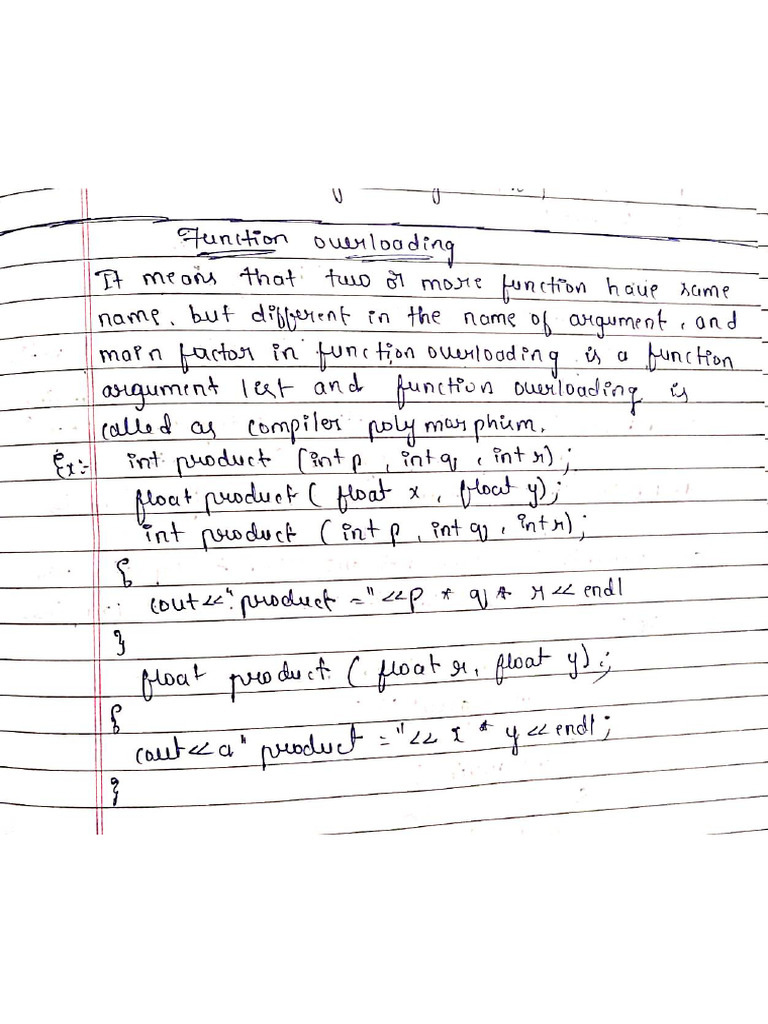 Function overloading
It means that two or more function have same
name, but different in the name of argument, and
main factor in function overloading is a function
argument lest and function overloading is
called as compiler polymorphium.
Ex:- int product (int p, int q, int r);
float product ( float x, float y);
int product (int p, int q, int r);
{
cout<<"product ="<<p * q * r<<endl
}
float product ( float r, float y);
{
cout<<a" product ="<< x * y<<endl;
}